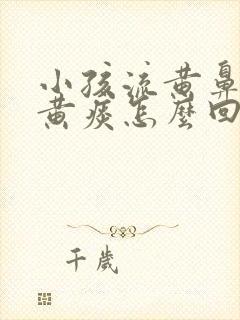 小孩流黄鼻
黄痰怎麼回
千歲